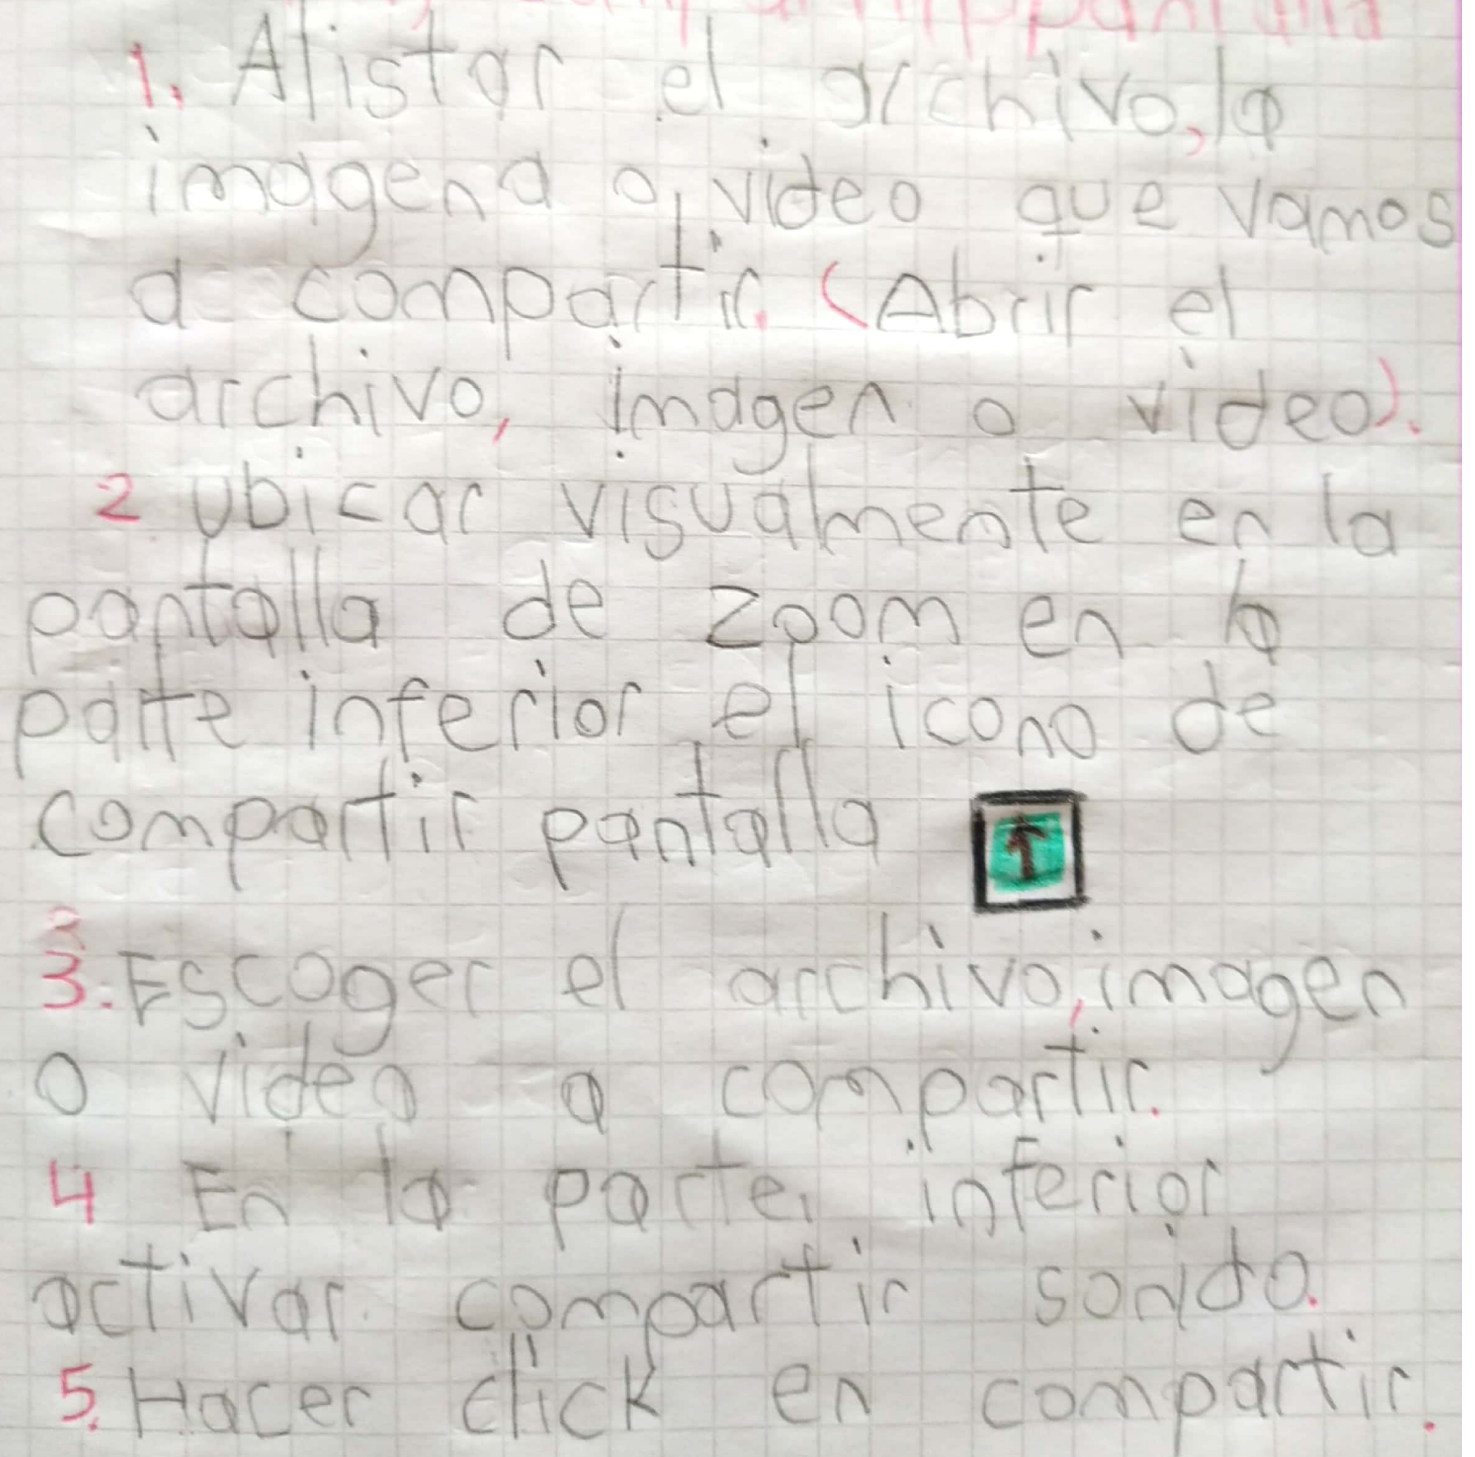 1. Alistar el archivo, la
imagena o video que vamos
a compartir. (Abrir el
archivo, imagen o video).
2 ubicar visualmente en la
pantalla de zoom en la
parte inferior el icono de
compartir pantalla
3. Escoger el archivo, imagen
o video a compartir.
4 En la parte inferior
activar compartir sonido.
5. Hacer click en compartir.